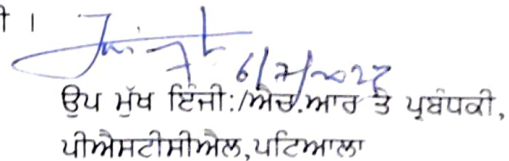 ੀ ।
6/7/2023
ਉਪ ਮੁੱਖ ਇੰਜੀ:/ਐਚ.ਆਰ ਤੇ ਪ੍ਰਬੰਧਕੀ,
ਪੀਐਸਟੀਸੀਐਲ,ਪਟਿਆਲਾ